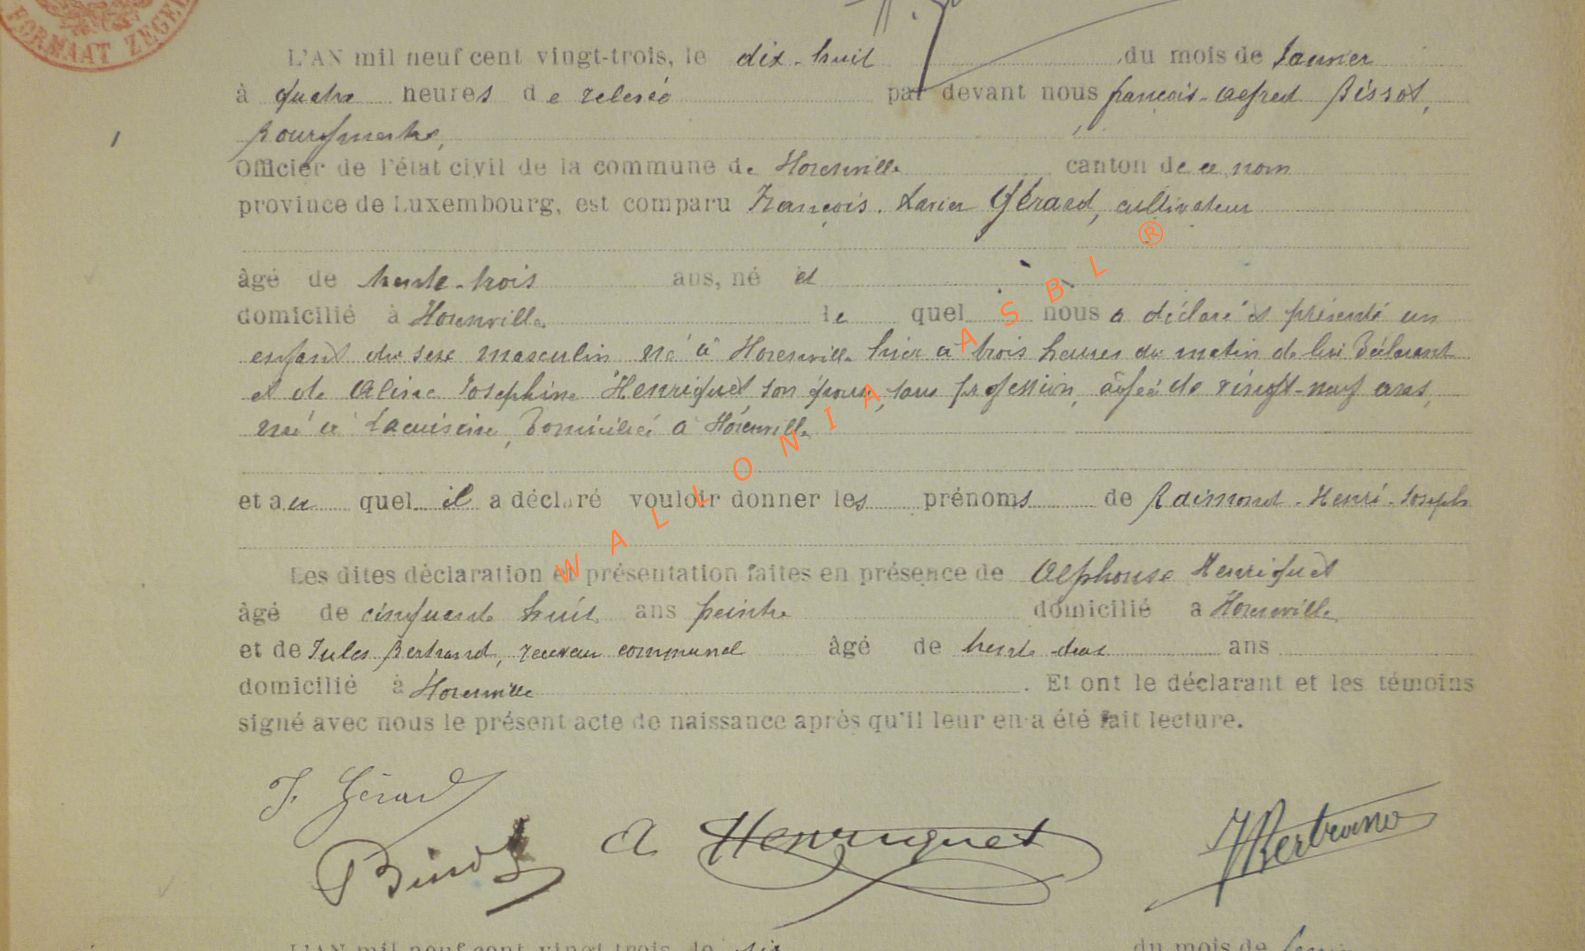 FORMAAT ZEGEL
L'AN mil neuf cent vingt-trois, le dix-huit du mois de Janvier
à quatre heures de relevée par devant nous françois-Alfred Bissot,
Bourgmestre,
Officier de l'état civil de la commune de Florenville canton de ce nom
province de Luxembourg, est comparu François-Xavier Gérard, cultivateur
âgé de trente-trois ans, né et
domicilié à Florenville lequel nous a déclaré et présenté un
enfant du sexe masculin né à Florenville hier à trois heures du matin de lui Déclarant
et de Aline Josephine Henriquet son épouse, sans profession, âgée de vingt-neuf ans,
née à Lacuisine, Domiciliée à Florenville
et au quel il a déclaré vouloir donner les prénoms de Raimond-Henri-Joseph
Les dites déclaration et présentation faites en présence de Alphonse Henriquet
âgé de cinquante huit ans peintre domicilié à Florenville
et de Jules Bertrand, receveur communal âgé de trente deux ans
domicilié à Florenville. Et ont le déclarant et les témoins
signé avec nous le présent acte de naissance après qu'il leur en a été fait lecture.
F. Gérard
Bissot A Henriquet JBertrand
L'AN mil neuf cent vingt-trois, le dix du mois de
WALLONIA ASBL ®